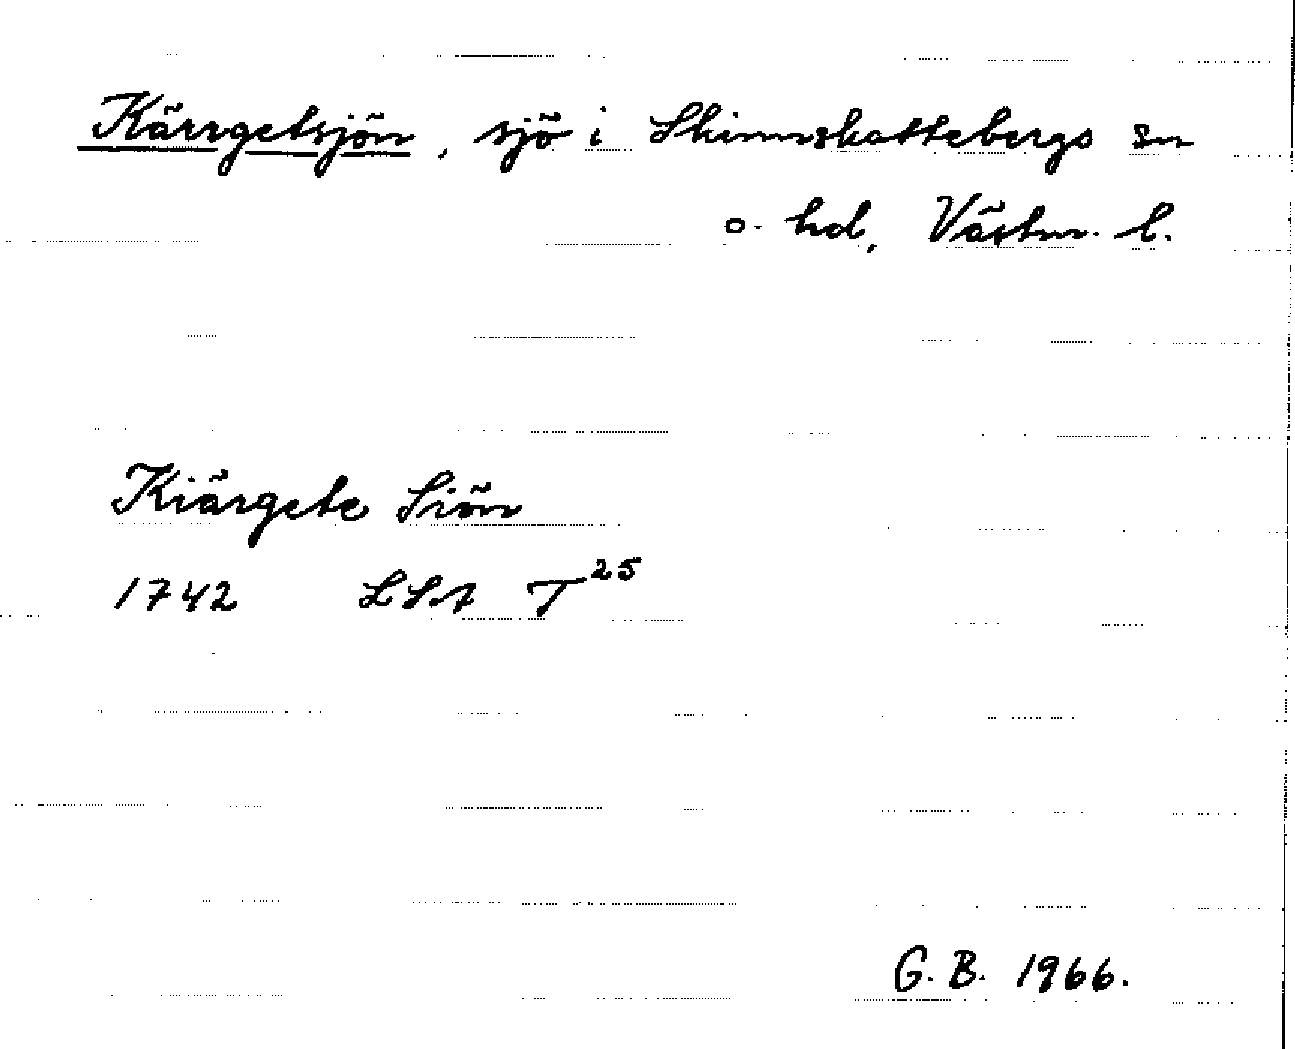 Kärrgetsjön, sjö i Skinnskattebergs sn
o. hd, Västm. l.
Kiärgete Siön
1742 LSA T25
G. B. 1966.